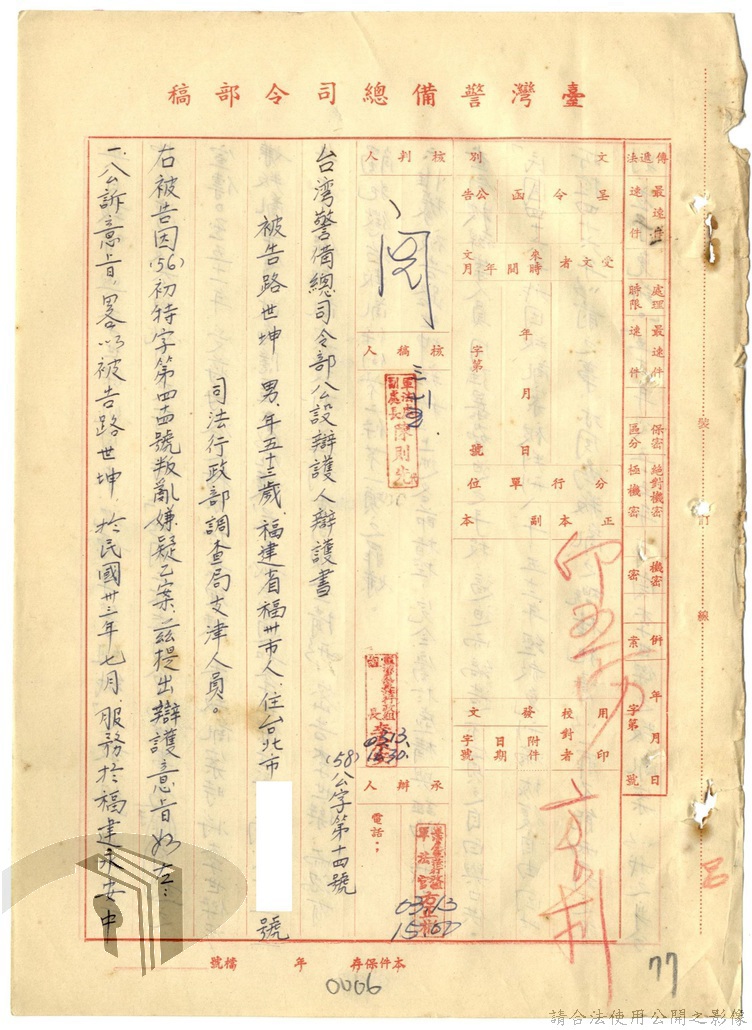 臺灣警備總司令部稿
傳遞決
最速件
速件
處理時限
最速件
速件
保密區分
絕對機密
極機密
機密
密
案
年 月 日
字第 號
文別
呈
令
函
公告
受文者
來文時間
年 月
年 月 日
字第 號
分行單位
正本
副本
發文
用印
校對者
附件
日期
字號
核判人
閱
核稿人
軍法處副處長 陳則
承辦人
電話:
03.13.
03.13
15.00
(58)公字第十四號
台湾警備總司令部公設辯護人辯護書
被告路世坤 男、年五十三歲、福建省福州市人、住台北市 號
司法行政部調查局支津人員。
右被告因(56)初特字第四十號叛亂嫌疑乙案、茲提出辯護意旨如左:
一、公訴意旨、畧以被告路世坤、於民國卅三年七月、服務於福建永安中
裝
訂
線
本件保存 年
檔號
0006
77
請合法使用公開之影像